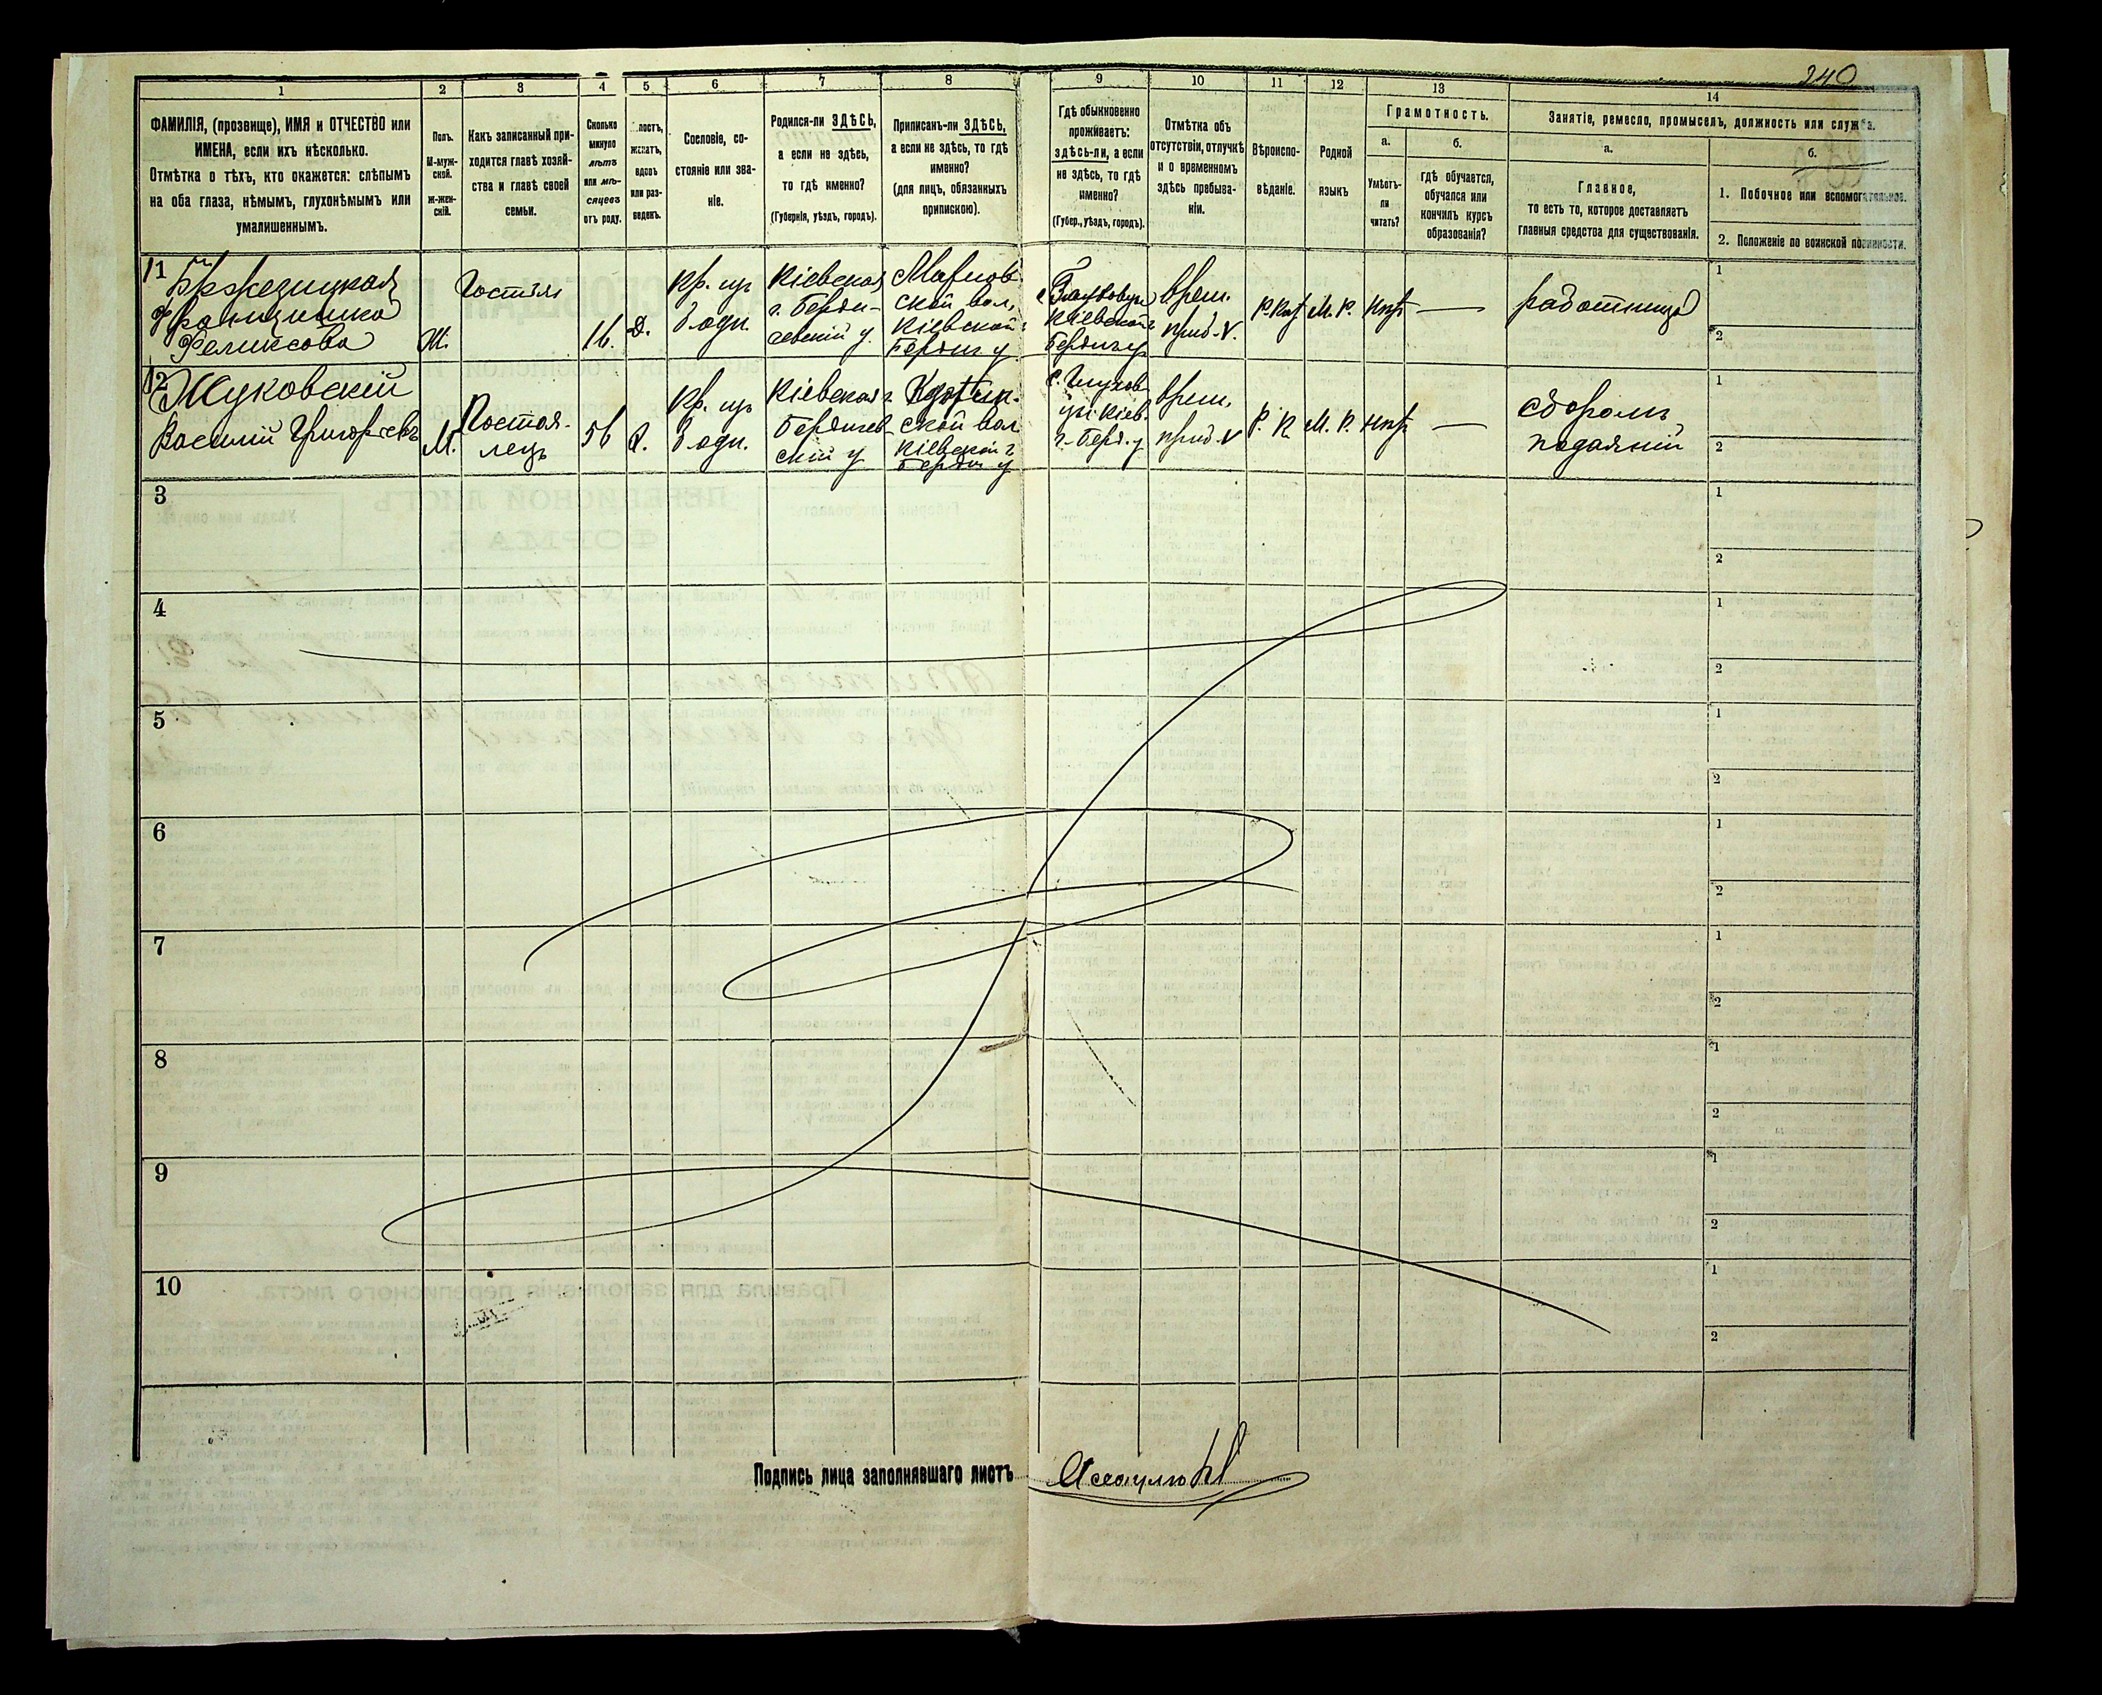 240
1
2
3
4
5
6
7
8
9
10
11
12
13
14
ФАМИЛІЯ, (прозвище), ИМЯ и ОТЧЕСТВО или
ИМЕНА, если ихъ нѣсколько.
Отмѣтка о тѣхъ, кто окажется: слѣпымъ
на оба глаза, нѣмымъ, глухонѣмымъ или
умалишеннымъ.
Полъ.
М-муж-
ской.
Ж-жен-
скій.
Какъ записанный при-
ходится главѣ хозяй-
ства и главѣ своей
семьи.
Сколько
минуло
лѣтъ
или мѣ-
сяцевъ
отъ роду.
женатъ,
вдовъ
или раз-
веденъ.
Сословіе, со-
стояніе или зва-
ніе.
Родился-ли ЗДѢСЬ,
а если не здѣсь,
то гдѣ именно?
(Губернія, уѣздъ, городъ).
Приписанъ-ли ЗДѢСЬ,
а если не здѣсь, то гдѣ
именно?
(для лицъ, обязанныхъ
припискою).
Гдѣ обыкновенно
проживаетъ:
здѣсь-ли, а если
не здѣсь, то гдѣ
именно?
(Губер., уѣздъ, городъ).
Отмѣтка объ
отсутствіи, отлучкѣ
и о временномъ
здѣсь пребыва-
ніи.
Вѣроиспо-
вѣданіе.
Родной
языкъ
Грамотность.
а.
Умѣетъ-
ли
читать?
б.
гдѣ обучается,
обучался или
кончилъ курсъ
образованія?
Занятіе, ремесло, промыселъ, должность или служба.
а.
Главное,
то есть то, которое доставляетъ
главныя средства для существованія.
б.
1. Побочное или вспомогательное.
2. Положеніе по воинской повинности.
11
Францишка
Феликсова
Ж.
Гостья
16.
Д.
Кр. изъ
Кіевская
г. Берди-
чевскій у.
ской вол.
Кіевской г.
Бердич у
Кіевской г
врем.
Р. Кат
М. Р.
—
работница
1
2
12
Жуковскій
Василій Григорьевъ
М.
Постоя-
лецъ
56
Кр. изъ
Кіевская г.
Бердичев-
скій у
ской вол
Кіевской г
Бердич у
врем.
Р. К
М. Р.
—
сборомъ
подаяній
1
2
3
1
2
4
1
2
5
1
2
6
1
2
7
1
2
8
1
2
9
1
2
10
1
2
Подпись лица заполнявшаго листъ